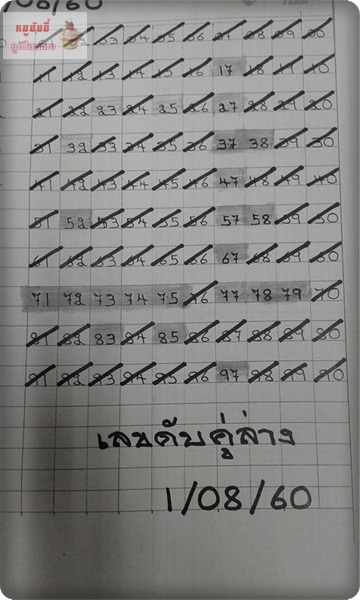 /08/60
11 12 13 14 15 16 17 18 19 10
21 22 23 24 25 26 27 28 29 20
31 32 33 34 35 36 37 38 39 30
41 42 43 44 45 46 47 48 49 40
51 52 53 54 55 56 57 58 59 50
61 62 63 64 65 66 67 68 69 60
71 72 73 74 75 76 77 78 79 70
81 82 83 84 85 86 87 88 89 80
91 92 93 94 95 96 97 98 99 90
เลขดับคู่ล่าง
1/08/60